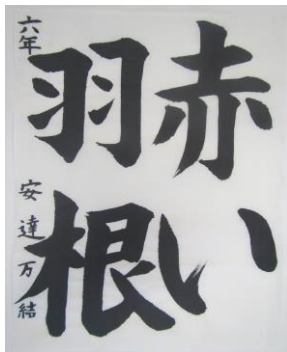 赤い
羽根
六年 安達万結